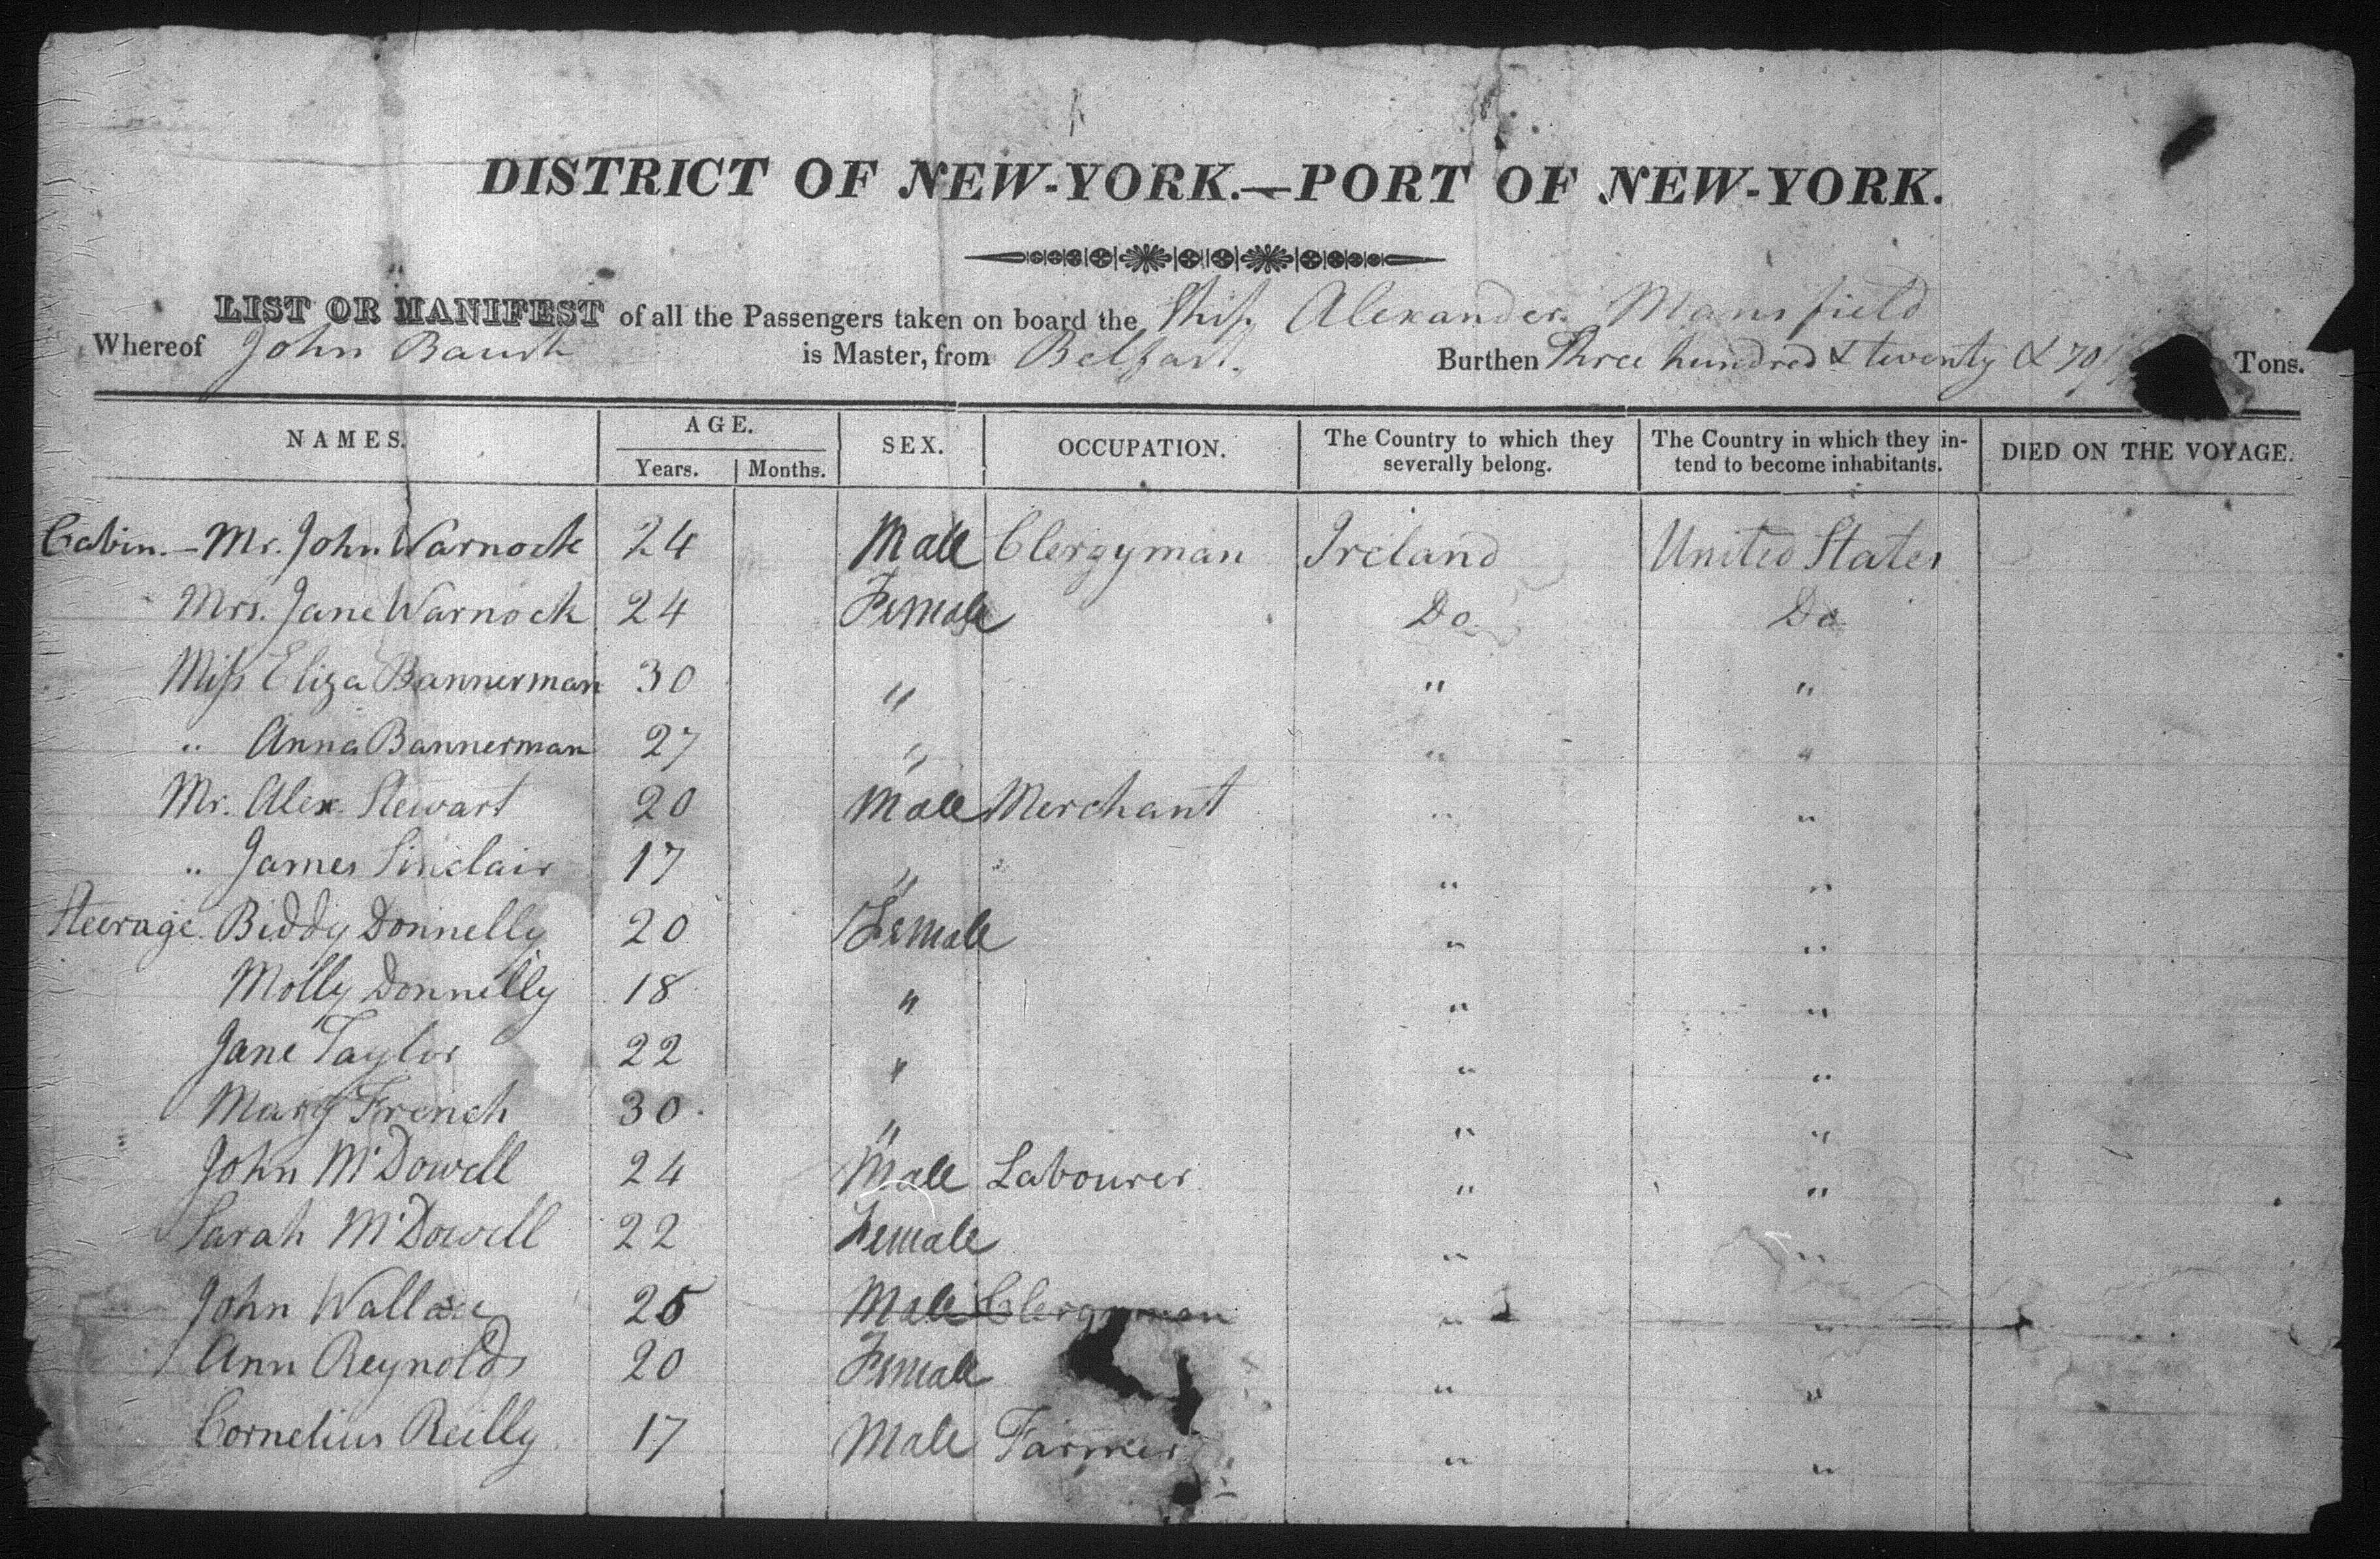 DISTRICT OF NEW-YORK.—PORT OF NEW-YORK.
LIST OR MANIFEST of all the Passengers taken on board the Ship Alexander Mansfield
Whereof John is Master, from Belfast. Burthen Three hundred & twenty & 70/ Tons.
NAMES. AGE. SEX. OCCUPATION. The Country to which they severally belong. The Country in which they intend to become inhabitants. DIED ON THE VOYAGE.
Years. Months.
Cabin.—Mr. John Warnock 24 Male Clergyman Ireland United States
Mrs. Jane Warnock 24 Female Do. Do
Miss Eliza Bannerman 30 " " "
" Anna Bannerman 27 " " "
Mr. Alex. Stewart 20 Male Merchant " "
" James Sinclair 17 " " "
Steerage. Biddy Donnelly 20 Female " "
Molly Donnelly 18 " " "
Jane Taylor 22 " " "
Mary French 30 " " "
John McDowell 24 Male Labourer " "
Sarah McDowell 22 Female " "
John Wallace 25 Male Clergyman " "
Ann Reynolds 20 Female " "
Cornelius Reilly 17 Male Farmer " "